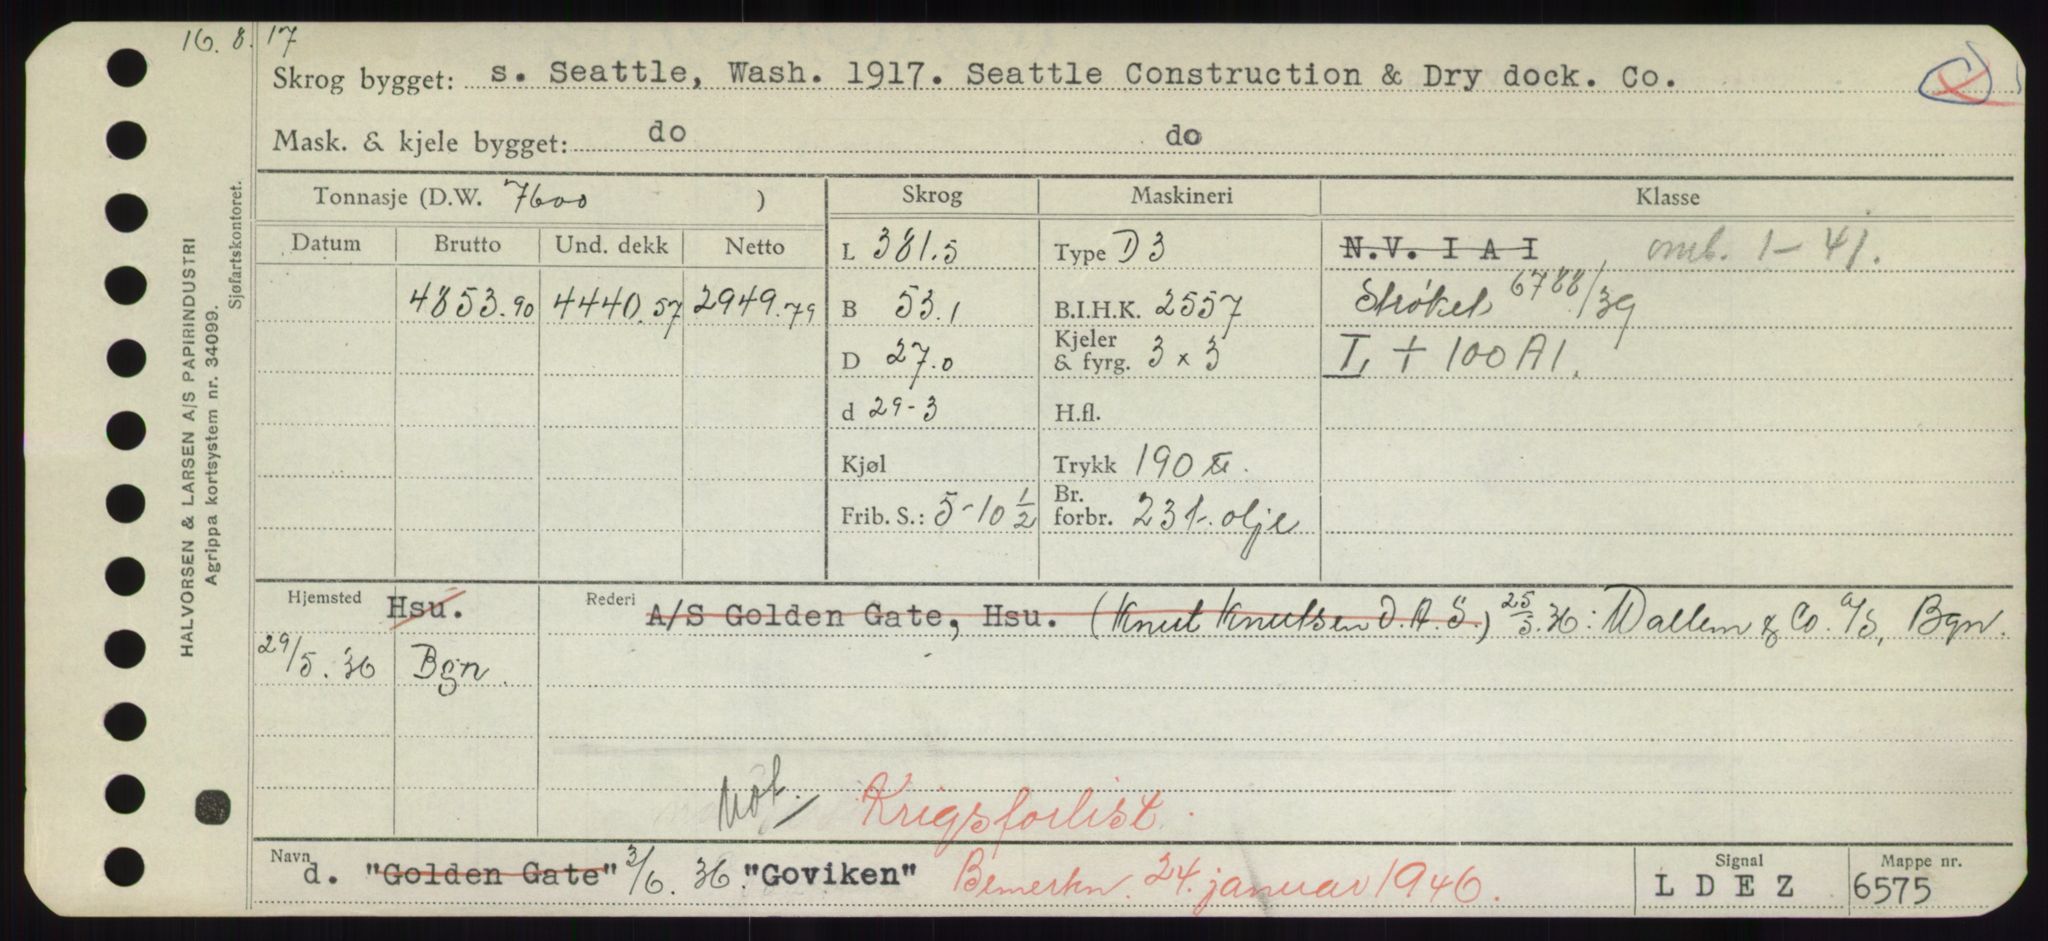 16. 8. 17
Skrog bygget: s. Seattle, Wash. 1917. Seattle Construction & Dry dock. Co.
Mask. & kjele bygget: do do
Tonnasje (D.W. 7600 ) Skrog Maskineri Klasse
Datum Brutto Und. dekk Netto L 381.5 Type D3 N.V. I A I omb. 1-41.
4853.90 4440.57 2949.79 B 53.1 B.I.H.K. 2557 Strøket 6788/39
D 27.0 Kjeler & fyrg. 3 x 3 L + 100 A1.
d 29-3 H.fl.
Kjøl Trykk 190
Frib. S.: 5-10 1/2 Br. forbr. 23 t. olje
Hjemsted Hsu. Rederi A/S Golden Gate, Hsu. (Knut Knutsen O.A.S.) 25/5.36: Wallem & Co. A/S, Bgn.
29/5.36 Bgn.
Krigsforlist.
Navn d. "Golden Gate" 3/6.36. "Goviken" Bemerkn. 24. januar 1946. Signal L D E Z Mappe nr. 6575
HALVORSEN & LARSEN A/S PAPIRINDUSTRI
Agrippa kortsystem nr. 34099.
Sjøfartskontoret.